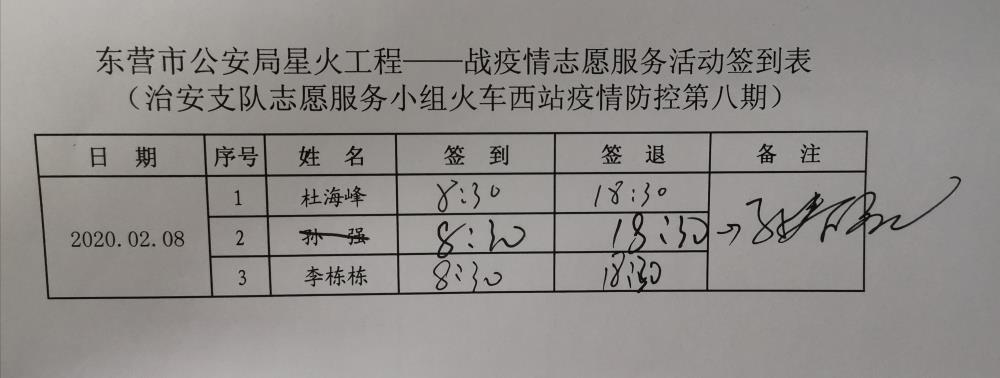 东营市公安局星火工程——战疫情志愿服务活动签到表
（治安支队志愿服务小组火车西站疫情防控第八期）
日 期 序号 姓 名 签 到 签 退 备 注
2020.02.08
1 杜海峰 8:30 18:30
2 孙 强 8:30 18:30 →
3 李栋栋 8:30 18:30